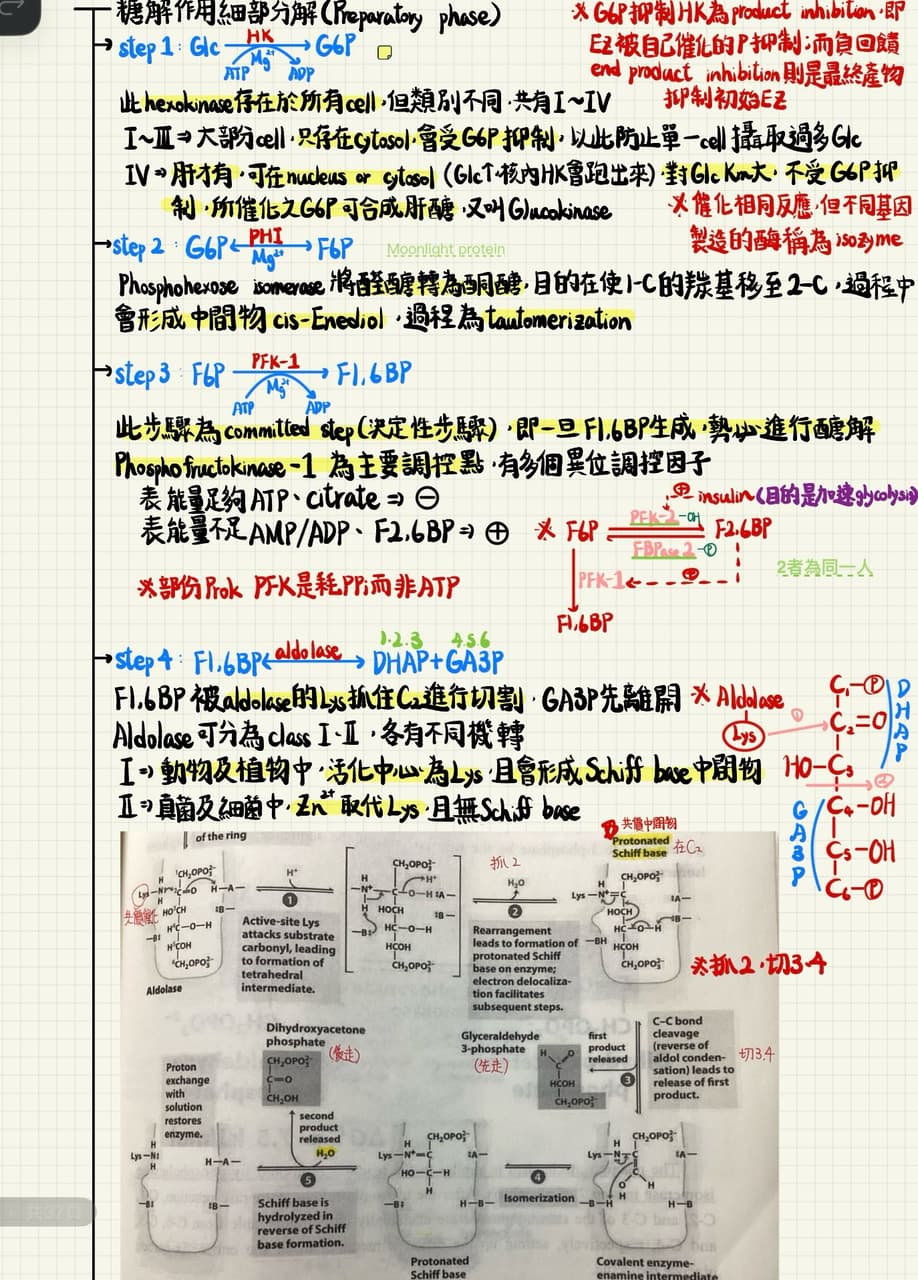 糖解作用細部分解(Preparatory phase)
→ step 1: Glc HK G6P
Mg²⁺
ATP ADP
※ G6P抑制HK為product inhibition,即
EZ被自己催化的P抑制;而負回饋
end product inhibition則是最終產物
抑制初始EZ
此hexokinase存在於所有cell,但類別不同,共有I~IV
I~III⇒大部分cell,只存在cytosol,會受G6P抑制,以此防止單一cell攝取過多Glc
IV⇒肝才有,可在nucleus or cytosol (Glc↑,核內HK會跑出來)對Glc Km大,不受G6P抑
制,所催化之G6P可合成肝醣,又叫Glucokinase
※催化相同反應,但不同基因
製造的酶稱為isozyme
→step 2: G6P PHI F6P
Mg²⁺
Moonlight protein
Phosphohexose isomerase將醛醣轉為酮醣,目的在使1-C的羰基移至2-C,過程中
會形成中間物cis-Enediol,過程為tautomerization
→step 3: F6P PFK-1 F1.6BP
Mg²⁺
ATP ADP
此步驟為committed step(決定性步驟),即一旦F1.6BP生成,勢必進行醣解
Phosphofructokinase-1 為主要調控點,有多個異位調控因子
表能量足夠ATP、citrate ⇒ ⊖
表能量不足AMP/ADP、F2.6BP⇒ ⊕
⊕ insulin(目的是加速glycolysis)
PFK-2-OH
※ F6P F2.6BP
FBPase 2-Ⓟ
PFK-1 ⊕
F1.6BP
2者為同一人
※部份Prok PFK是耗PPi而非ATP
1.2.3 4.5.6
→step 4: F1.6BP aldolase DHAP+GA3P
F1.6BP 被aldolase的Lys抓住C2進行切割,GA3P先離開
Aldolase可分為class I、II,各有不同機轉
I⇒動物及植物中,活化中心為Lys,且會形成Schiff base中間物
II⇒真菌及細菌中,Zn²⁺取代Lys,且無Schiff base
※ Aldolase
Lys ①
C₁-Ⓟ
C₂=O
HO-C₃
②
C₄-OH
C₅-OH
C₆-Ⓟ
DHAP
GA3P
of the ring
¹CH₂OPO₃²⁻
Lys
共價催化
HO³CH
H⁴C-O-H
H⁵COH
⁶CH₂OPO₃²⁻
Aldolase
H⁺
1
Active-site Lys
attacks substrate
carbonyl, leading
to formation of
tetrahedral
intermediate.
CH₂OPO₃²⁻
HOCH
HC-O-H
HCOH
CH₂OPO₃²⁻
抓2
H₂O
2
Rearrangement
leads to formation of
protonated Schiff
base on enzyme;
electron delocaliza-
tion facilitates
subsequent steps.
共價中間物
Protonated
Schiff base
在C₂
CH₂OPO₃²⁻
Lys
HOCH
HC-O-H
HCOH
CH₂OPO₃²⁻
※抓2,切3.4
C–C bond
cleavage
(reverse of
aldol conden-
sation) leads to
release of first
product.
切3.4
3
first
product
released
Glyceraldehyde
3-phosphate
(先走)
HCOH
CH₂OPO₃²⁻
Dihydroxyacetone
phosphate
(後走)
CH₂OPO₃²⁻
C=O
CH₂OH
Proton
exchange
with
solution
restores
enzyme.
second
product
released
H₂O
5
Schiff base is
hydrolyzed in
reverse of Schiff
base formation.
CH₂OPO₃²⁻
Lys-N⁺=C
HO-C-H
Protonated
Schiff base
4
Isomerization
CH₂OPO₃²⁻
Lys
Covalent enzyme-
enamine intermediate